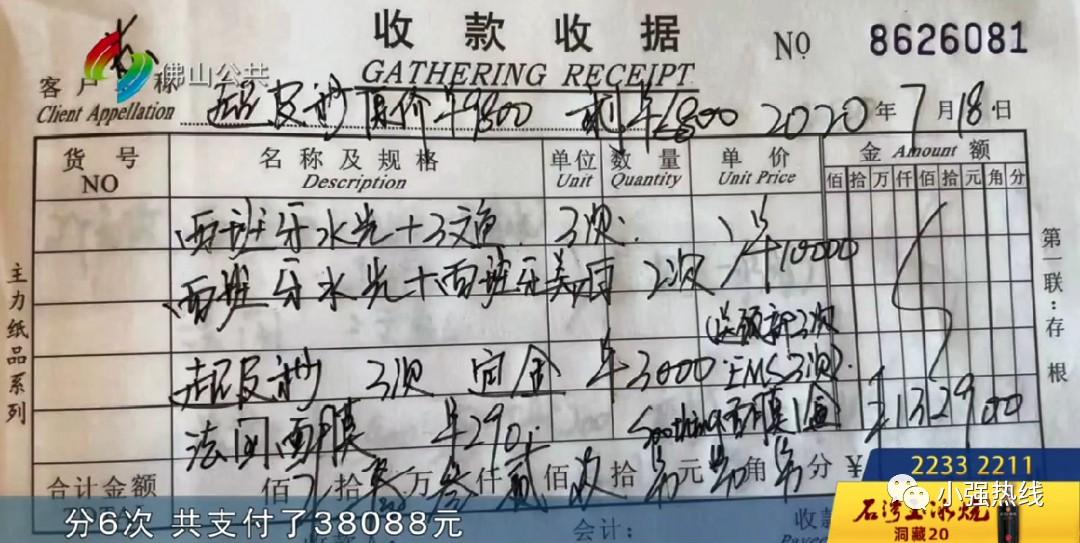 收款收据
GATHERING RECEIPT
NO 8626081
佛山公共
客户 称
Client Appellation
超皮秒 原价¥9800 ¥6800 2020年7月18日
货号 NO 名称及规格 Description 单位 Unit 数量 Quantity 单价 Unit Price 金 Amount 额
佰 拾 万 仟 佰 拾 元 角 分
西班牙水光+3文鱼 3次
西班牙水光+西班牙美 2次 ¥10000
送 3次
超皮秒 3次 定金 ¥3000 EMS3次)
法 面膜 ¥290 面膜1盒 ¥1329000
合计金额 佰 拾 万 叁 仟 贰 佰 玖 拾 元 角 分 ¥
主力纸品系列
第一联：存根
会计：
收款
分6次 共支付了38088元
2233 2211
小强热线
洞藏20